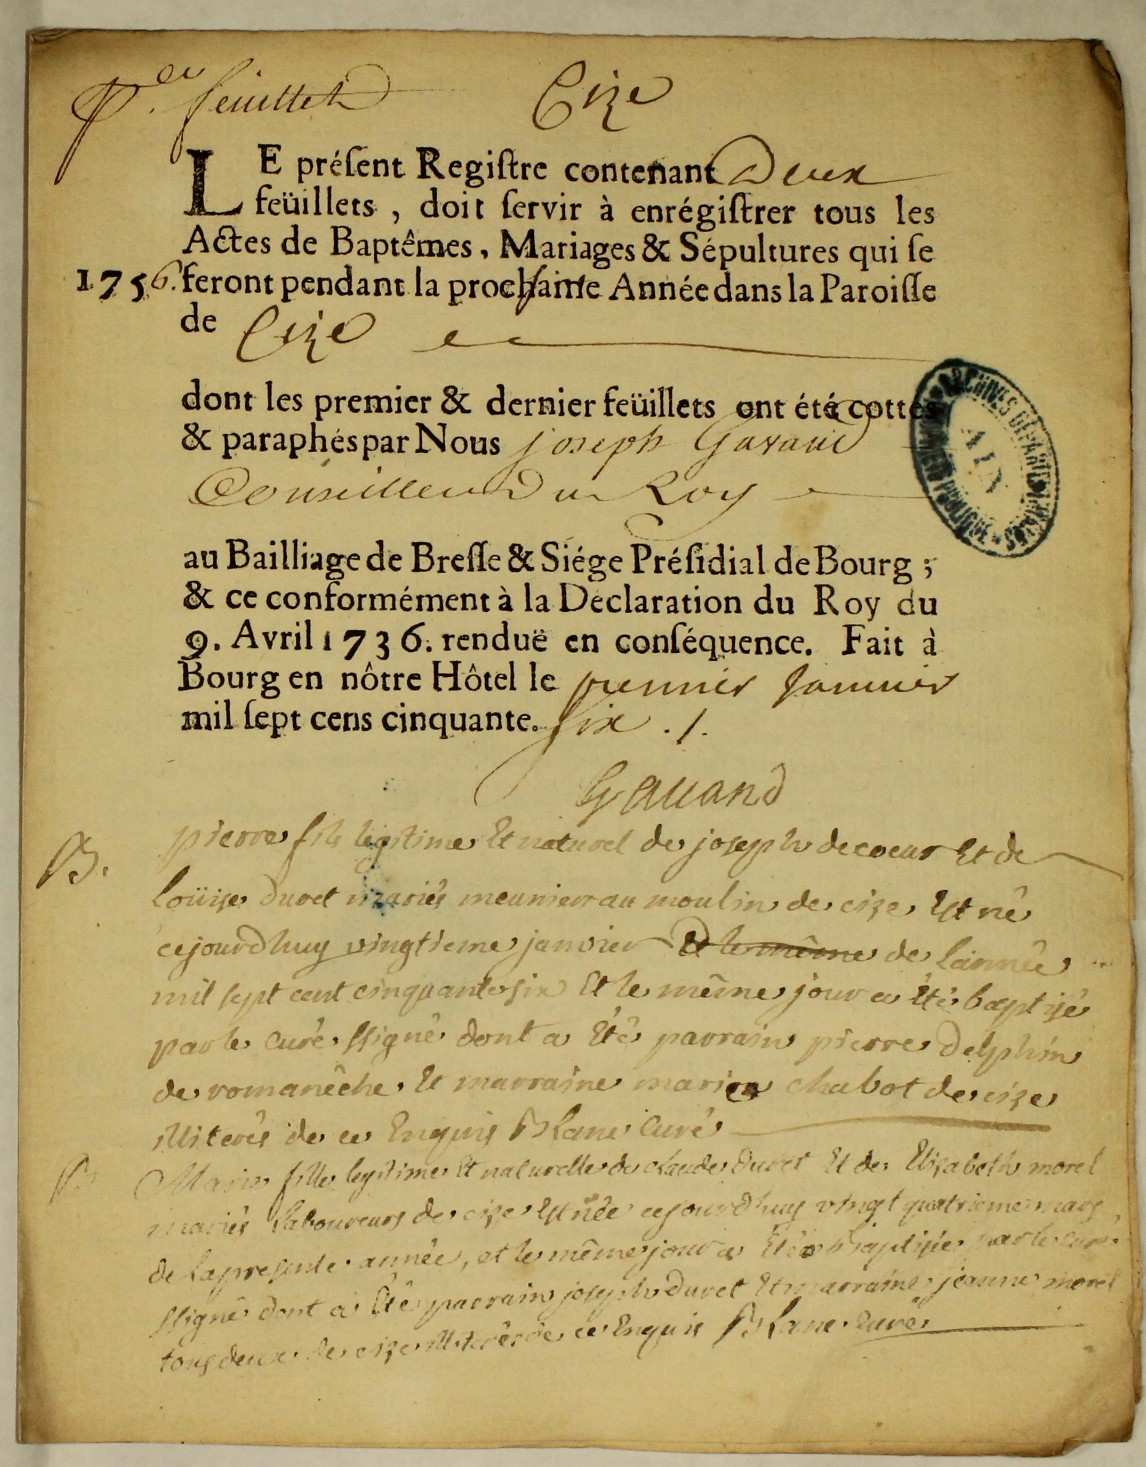 P.er feuillet Cize
LE préſent Regiſtre contenant Deux
feüillets, doit ſervir à enrégiſtrer tous les
Actes de Baptêmes, Mariages & Sépultures qui ſe
1756. feront pendant la prochaine Année dans la Paroiſſe
de Cize
dont les premier & dernier feüillets ont été cottés
& paraphés par Nous joseph Gavand
Conseiller Du Roy
ARCHIVES DÉPARTEMENTALES
AIN
au Bailliage de Breſſe & Siége Préſidial de Bourg ;
& ce conformément à la Déclaration du Roy du
9. Avril 1736. renduë en conſéquence. Fait à
Bourg en nôtre Hôtel le premier Janvier
mil ſept cens cinquante. six ./.
Gauand
B. pierre fils legitime Et naturel de joseph decoeur Et de
Loüise Duret mariés meunier au moulin de cize Est né
cejourdhuy vingtieme janvier Et le même de Lannée
mil sept cent cinquante six Et le même jour a Eté baptisé
par le curé ssigné dont a Eté parrain pierre Delphin
de romanêche Et marraine marie chabot de cize
illiterés de ce Enquis BLanc Curé
B. Marie fille legitime Et naturelle de claude Duret Et de Elisabeth morel
mariés Laboureurs de cize Est née cejourdhuy vingt quatrieme mars
de La presente année, et le même jour a Eté baptisée par le curé
ssigné dont a Eté parrain joseph Duret Et marraine jeanne morel
tous deux de cize illiterés de ce Enquis BLanc Curé